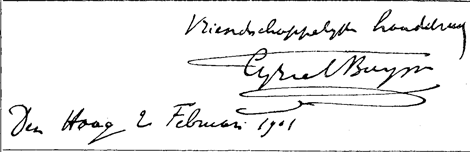 Vriendschappelijk handdruk
Cyriel Buysse
Den Haag 2 Februari 1901